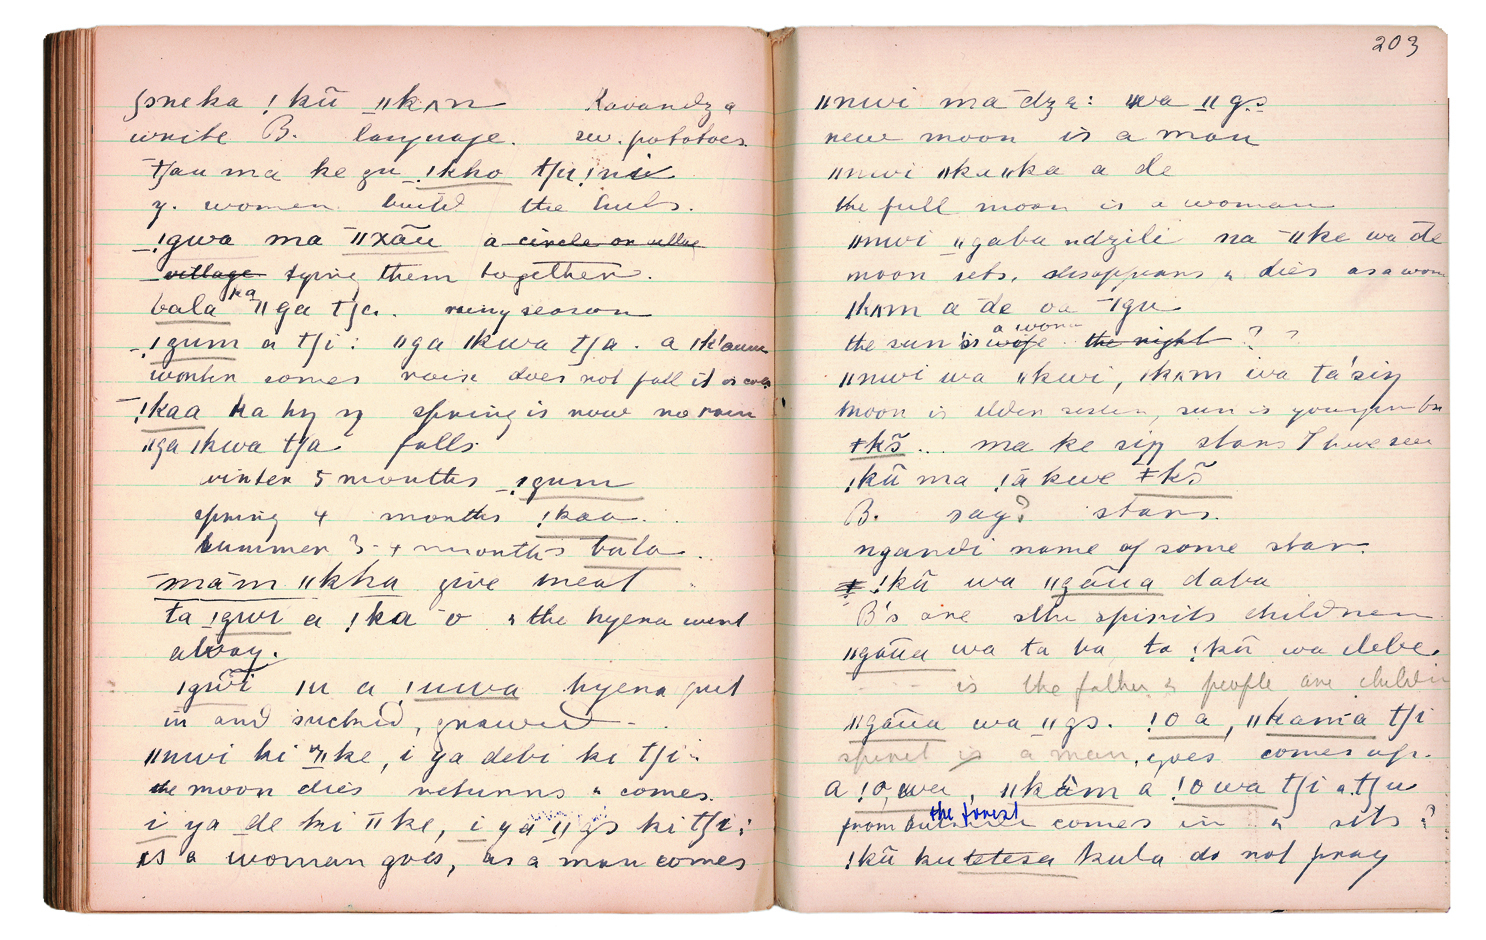 ʃoneka !kũ ǁkʌn Kavandʒa
write B. language. sw. potatoes
tʃau ma ke gu !kho tʃu!ni
y. women build the huts.
!gwa ma ǁxãu a circle or village
village tying them together.
bala ka ǁga tʃa. rainy season
!gum a tʃi: ǁga ǀkwa tʃa. a ǀk'aum
winter comes rain does not fall it is cold
!kaa ka hŋ ŋ spring is now no rain
ǁga ǀkwa tʃa falls
winter 5 months !gum
spring 4 months !kaa
summer 3-4 months bala.
mām ǁkha give meat
ta !gwi a !ka o the hyena went
away.
!gwĩ ǀu a !uwa hyena put
in and sucked, gnawed
ǁnwi ki ǁke, i ya debi ki tʃi
the moon dies returns & comes.
i ya de ki ǁke, i ya ǁgɔ ki tʃi:
is a woman goes, as a man comes
203
ǁnwi ma dzɛ: wa ǁgɔ
new moon is a man
ǁnwi ǁkaǁka a de
the full moon is a woman
ǁnwi ǁgaba ndzili na ǁke wa de
moon sets, disappears & dies as a wom
ǀkʌm a de oa ǃgu
the sun is wife a woman the night ? ?
ǁnwi wa ǁkwi, ǀkʌm wa ta'siŋ
moon is elder sister, sun is younger br
ǂkɔ̃... ma ke siŋ stars I have seen
!kũ ma !ā kwe ǂkɔ̃
B. say? stars.
ngandi name of some star.
!kũ wa ǁgãua daba
B's are the spirits children
ǁgãua wa ta ba ta !kũ wa debe.
is the father & people are children
ǁgãua wa ǁgɔ. !o a, ǁkama tʃi
spirit is a man, goes comes
a !o, wa, ǁkām a !o wa tʃi a tʃu
from the forest comes in & sits ?
!kũ kutetesa kula do not pray